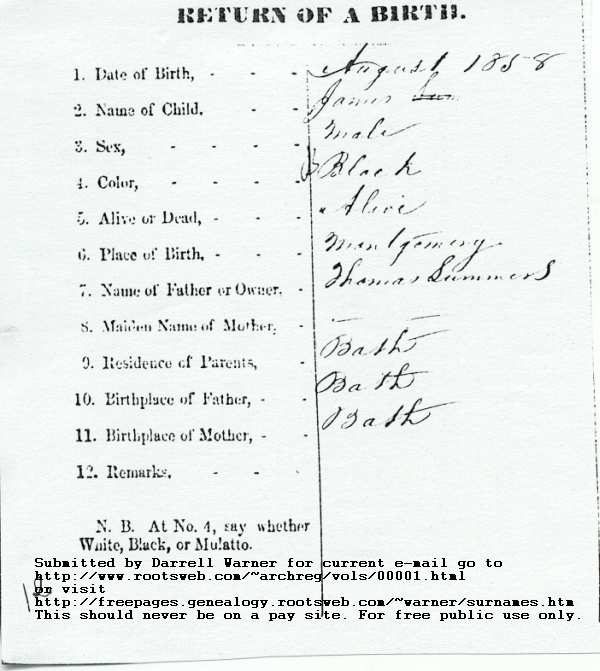 RETURN OF A BIRTH.
1. Date of Birth, - - - August 1858
2. Name of Child. - - James
3. Sex, - - - - Male
4. Color, - - - - Black
5. Alive or Dead, - - - Alive
6. Place of Birth, - - - Montgomery
7. Name of Father or Owner. - Thomas Summers
8. Maiden Name of Mother, - — —
9. Residence of Parents, - Bath
10. Birthplace of Father, - - Bath
11. Birthplace of Mother, - - Bath
12. Remarks, - - -
N. B. At No. 4, say whether
White, Black, or Mulatto.
Submitted by Darrell Warner for current e-mail go to
http://www.rootsweb.com/~archreg/vols/00001.html
or visit
http://freepages.genealogy.rootsweb.com/~warner/surnames.htm
This should never be on a pay site. For free public use only.